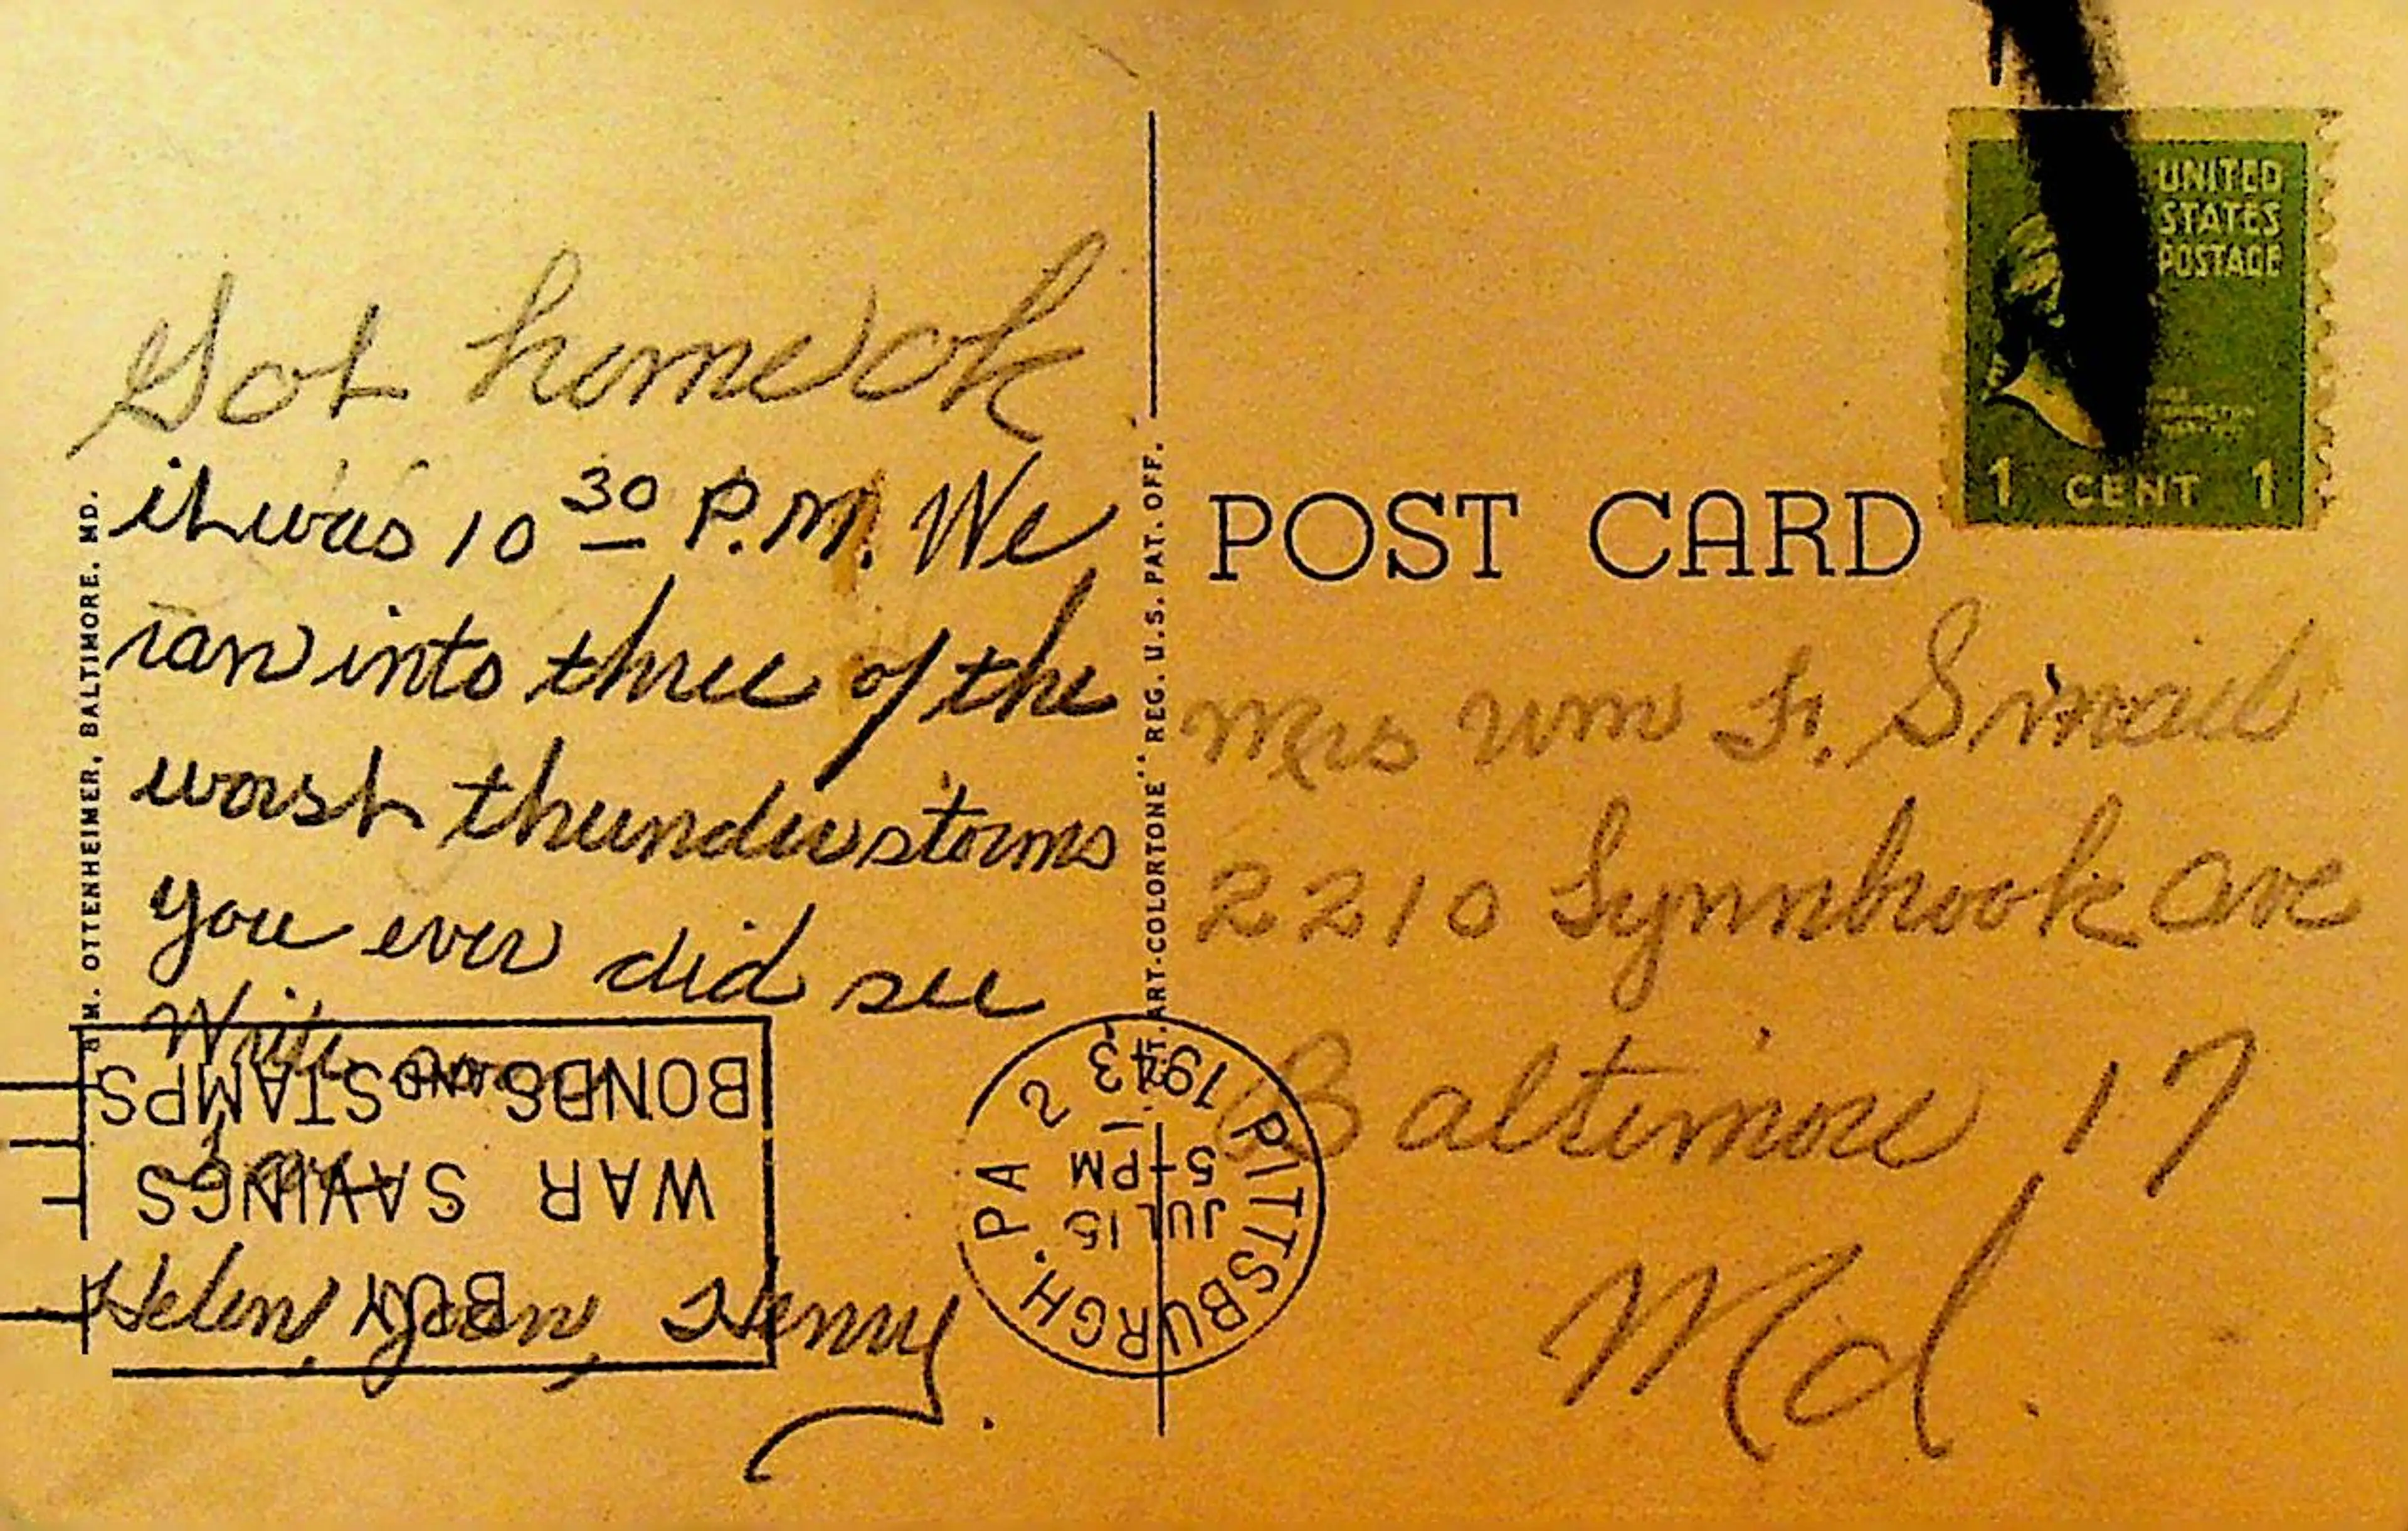 Got home ok
it was 10 30 P.M. We
ran into three of the
worst thunderstorms
you ever did see
Write soon
Love
Helen, Jean, Henry.
M. OTTENHEIMER, BALTIMORE, MD.
ART-COLORTONE" REG. U.S. PAT. OFF.
POST CARD
UNITED
STATES
POSTAGE
1 CENT 1
Mrs Wm F. Smail
2210 Lynnbrook Ave
Baltimore 17
Md.
BUY
WAR SAVINGS
BONDS AND STAMPS
PITTSBURGH, PA 2
JUL 15
5 - PM
1943